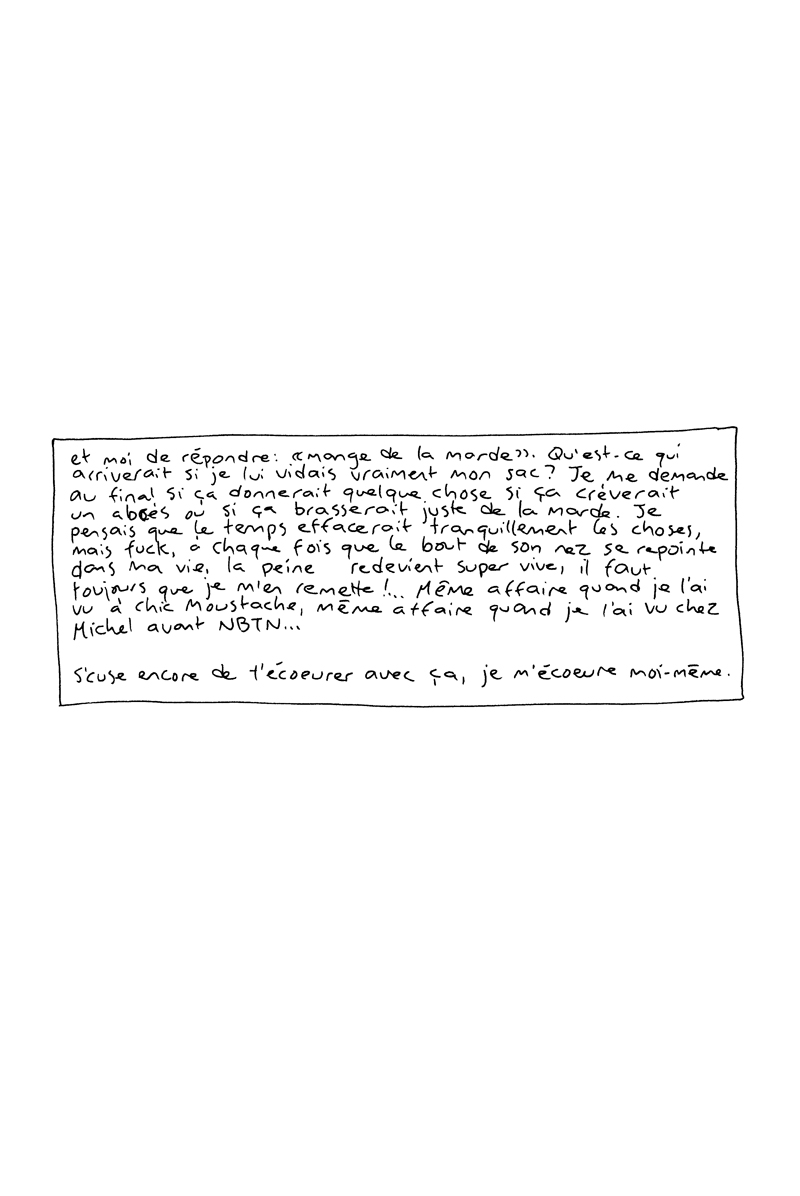 et moi de répondre: «mange de la marde». Qu'est-ce qui
arriverait si je lui vidais vraiment mon sac? Je me demande
au final si ça donnerait quelque chose si ça crèverait
un abcès ou si ça brasserait juste de la marde. Je
pensais que le temps effacerait tranquillement les choses,
mais fuck, à chaque fois que le bout de son nez se repointe
dans ma vie, la peine redevient super vive, il faut
toujours que je m'en remette!... Même affaire quand je l'ai
vu à chic Moustache, même affaire quand je l'ai vu chez
Michel avant NBTN...

S'cuse encore de t'écoeurer avec ça, je m'écoeure moi-même.